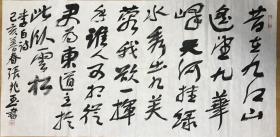 昔在九江上
遥望九華
峰天河挂绿
水秀出九芙
蓉我欲一揮
手誰人可相従
君為東道主於
此卧雲松
李白詩
己亥暮春張兆